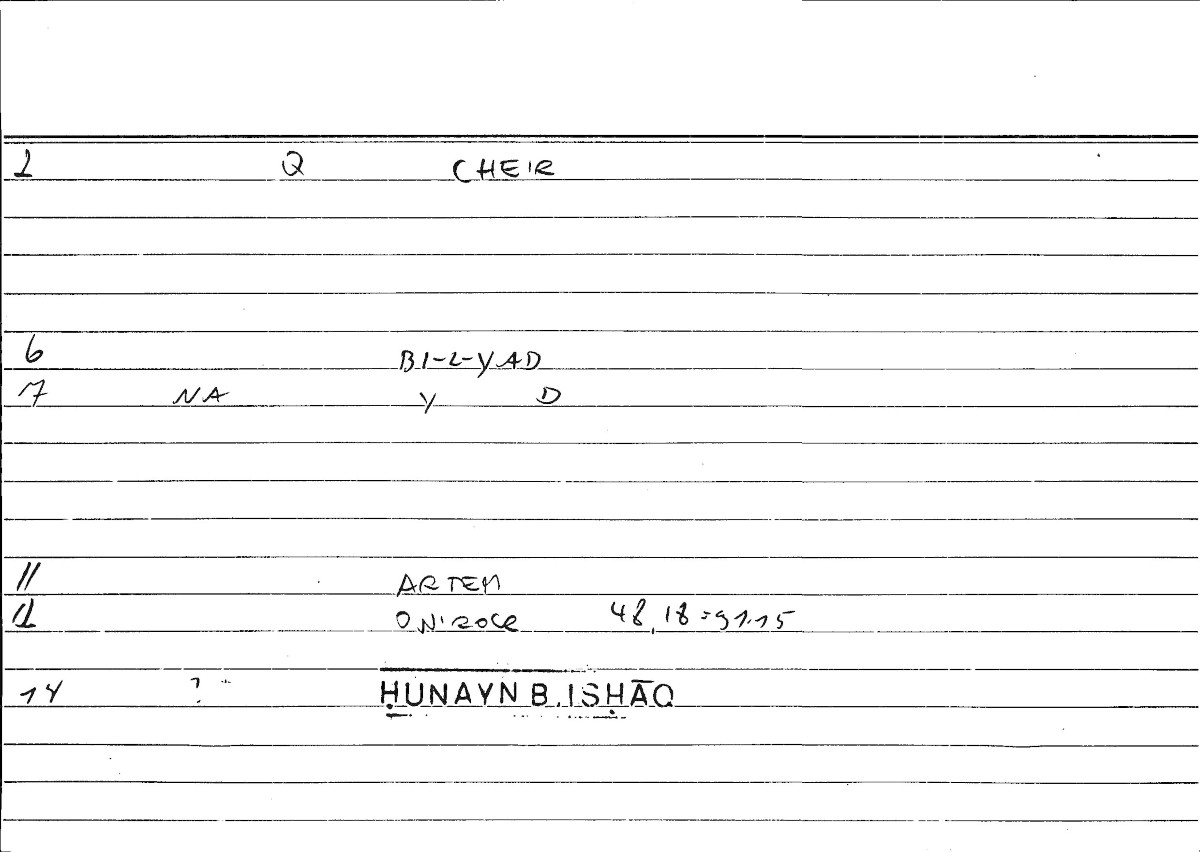 1 Q CHEIR
6 BI-L-YAD
7 NA Y D
11 ARTEM
12 ONIROCR 48,18=91.15
14 ? ḤUNAYN B. ISḤĀQ